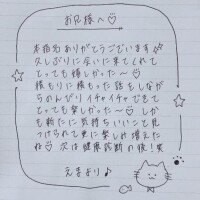 お兄様へ♡
本指名ありがとうございます
久しぶりに会いに来てくれて
とっても嬉しかった〜♡
積もりに積もった話をしなが
らのんびりイチャイチャできて
とっても楽しかった〜♡ し
かも新たに気持ちいいこと見
つけられて更に楽しみ増えた
ね♡ 次は健康診断の後！笑
えまより♪